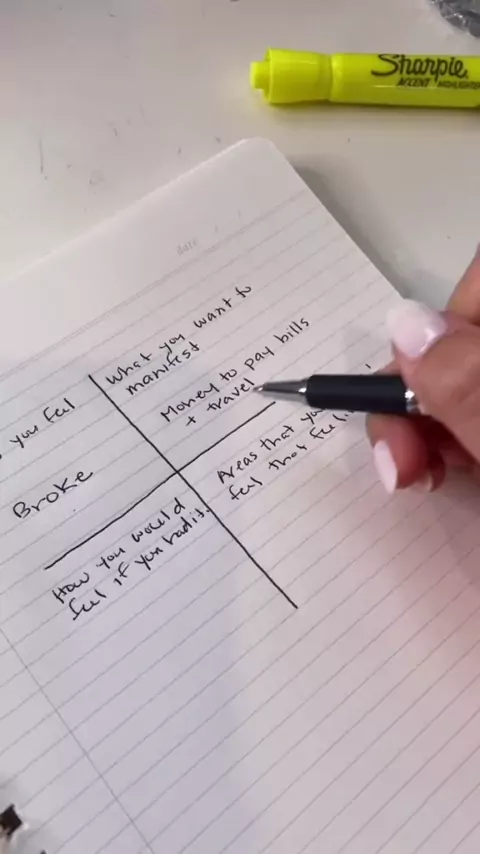 Sharpie
ACCENT HIGHLIGHTER
date / /
What you want to
manifest
Money to pay bills
+ travel
you feel
Broke
Areas that
feel that
How you would
feel if you had it.